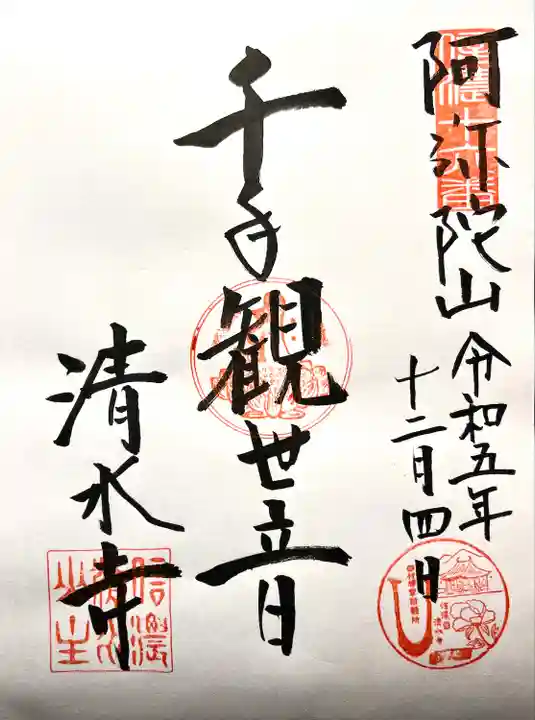 阿弥陀山
令和五年
十二月四日
千手観世音
清水寺
信濃十六番